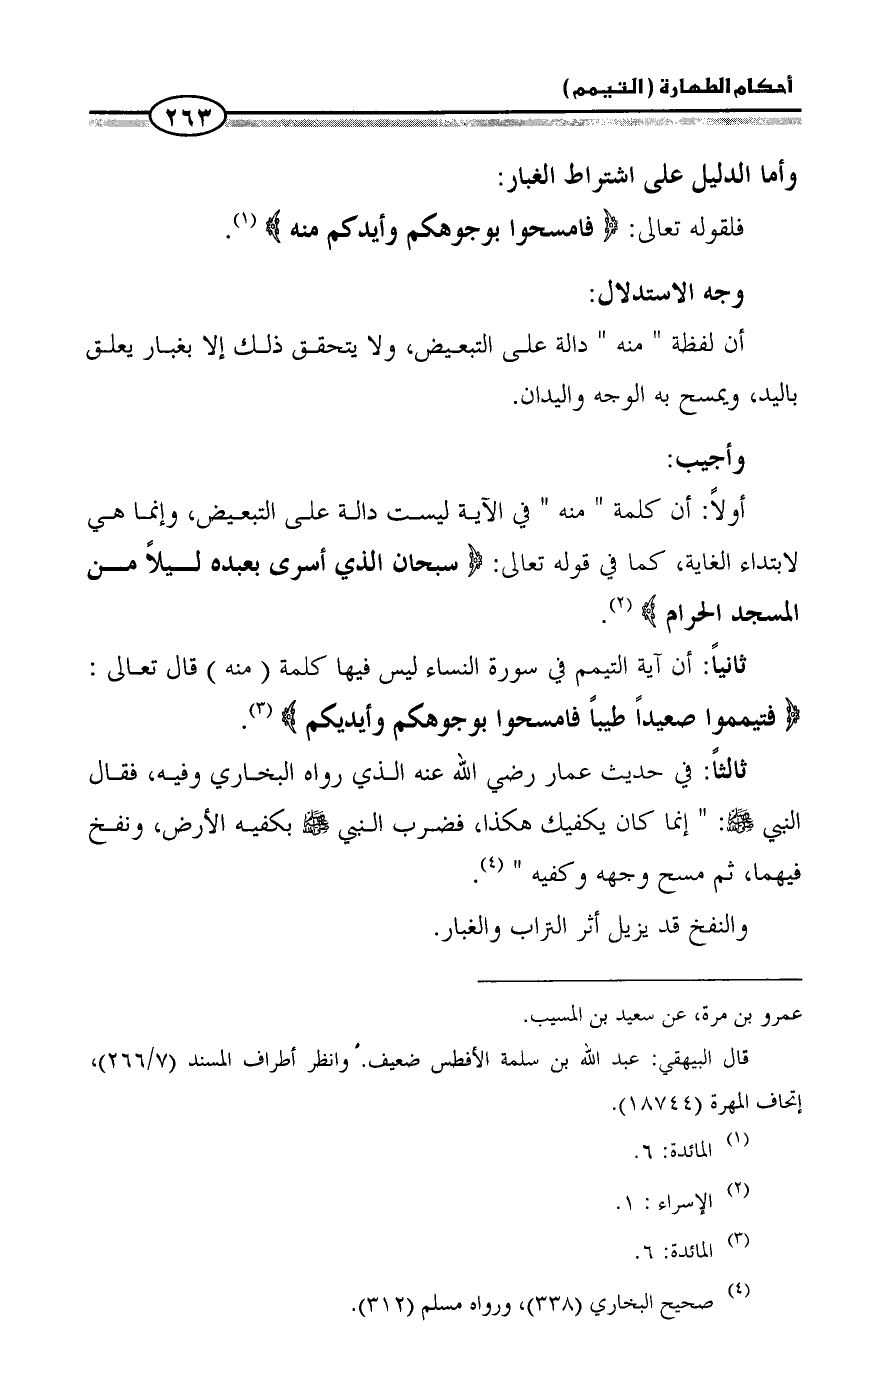 أحكام الطهارة (التيمم)
٢٦٣
وأما الدليل على اشتراط الغبار:
فلقوله تعالى: ﴿ فامسحوا بوجوهكم وأيدكم منه ﴾ (١).
وجه الاستدلال:
أن لفظة " منه " دالة على التبعيض، ولا يتحقق ذلك إلا بغبار يعلق
باليد، ويمسح به الوجه واليدان.
وأجيب:
أولاً: أن كلمة " منه " في الآية ليست دالة على التبعيض، وإنما هي
لابتداء الغاية، كما في قوله تعالى: ﴿ سبحان الذي أسرى بعبده ليلاً من
المسجد الحرام ﴾ (٢).
ثانياً: أن آية التيمم في سورة النساء ليس فيها كلمة ( منه ) قال تعالى :
﴿ فتيمموا صعيداً طيباً فامسحوا بوجوهكم وأيديكم ﴾ (٣).
ثالثاً: في حديث عمار رضي الله عنه الذي رواه البخاري وفيه، فقال
النبي ﷺ: " إنما كان يكفيك هكذا، فضرب النبي ﷺ بكفيه الأرض، ونفخ
فيهما، ثم مسح وجهه وكفيه " (٤).
والنفخ قد يزيل أثر التراب والغبار.
عمرو بن مرة، عن سعيد بن المسيب.
قال البيهقي: عبد الله بن سلمة الأفطس ضعيف. وانظر أطراف المسند (٢٦٦/٧)،
إتحاف المهرة (١٨٧٤٤).
(١) المائدة: ٦.
(٢) الإسراء : ١.
(٣) المائدة: ٦.
(٤) صحيح البخاري (٣٣٨)، ورواه مسلم (٣١٢).